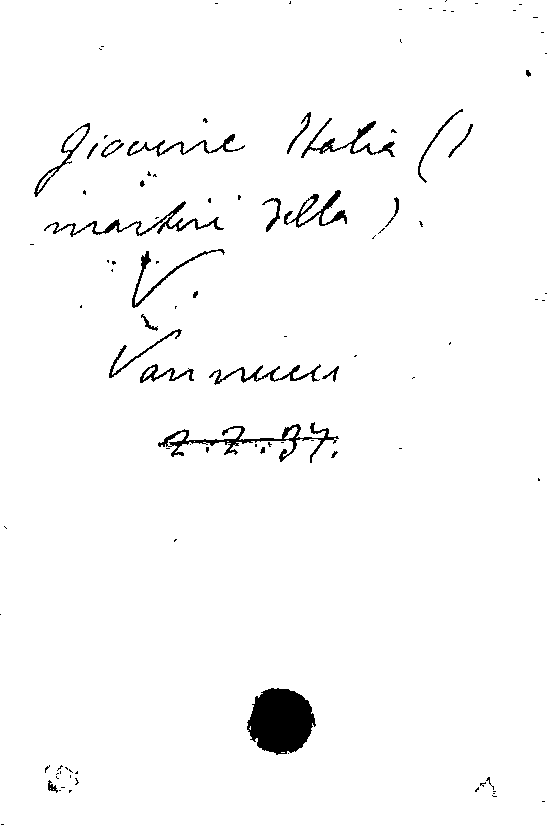 Giovine Italia (I
martiri della).
V.
Vannucci
2.2.34.